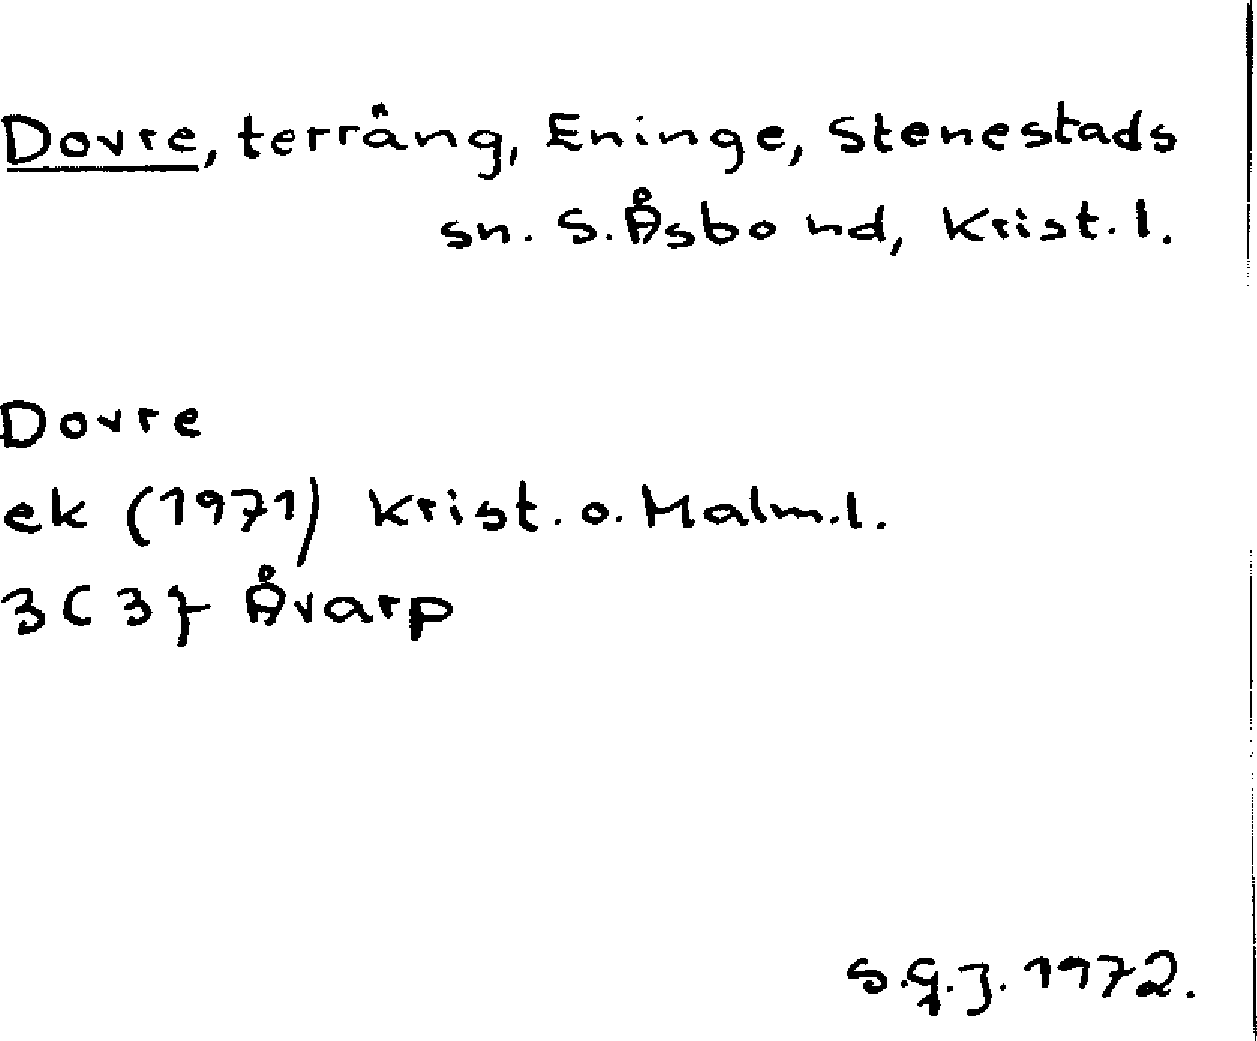 Dovre, terräng, Eninge, Stenestads
sn. S. Åsbo hd, Krist. l.
Dovre
ek (1971) Krist. o. Malm. l.
3C 3f Åvarp
S.G.J. 1972.